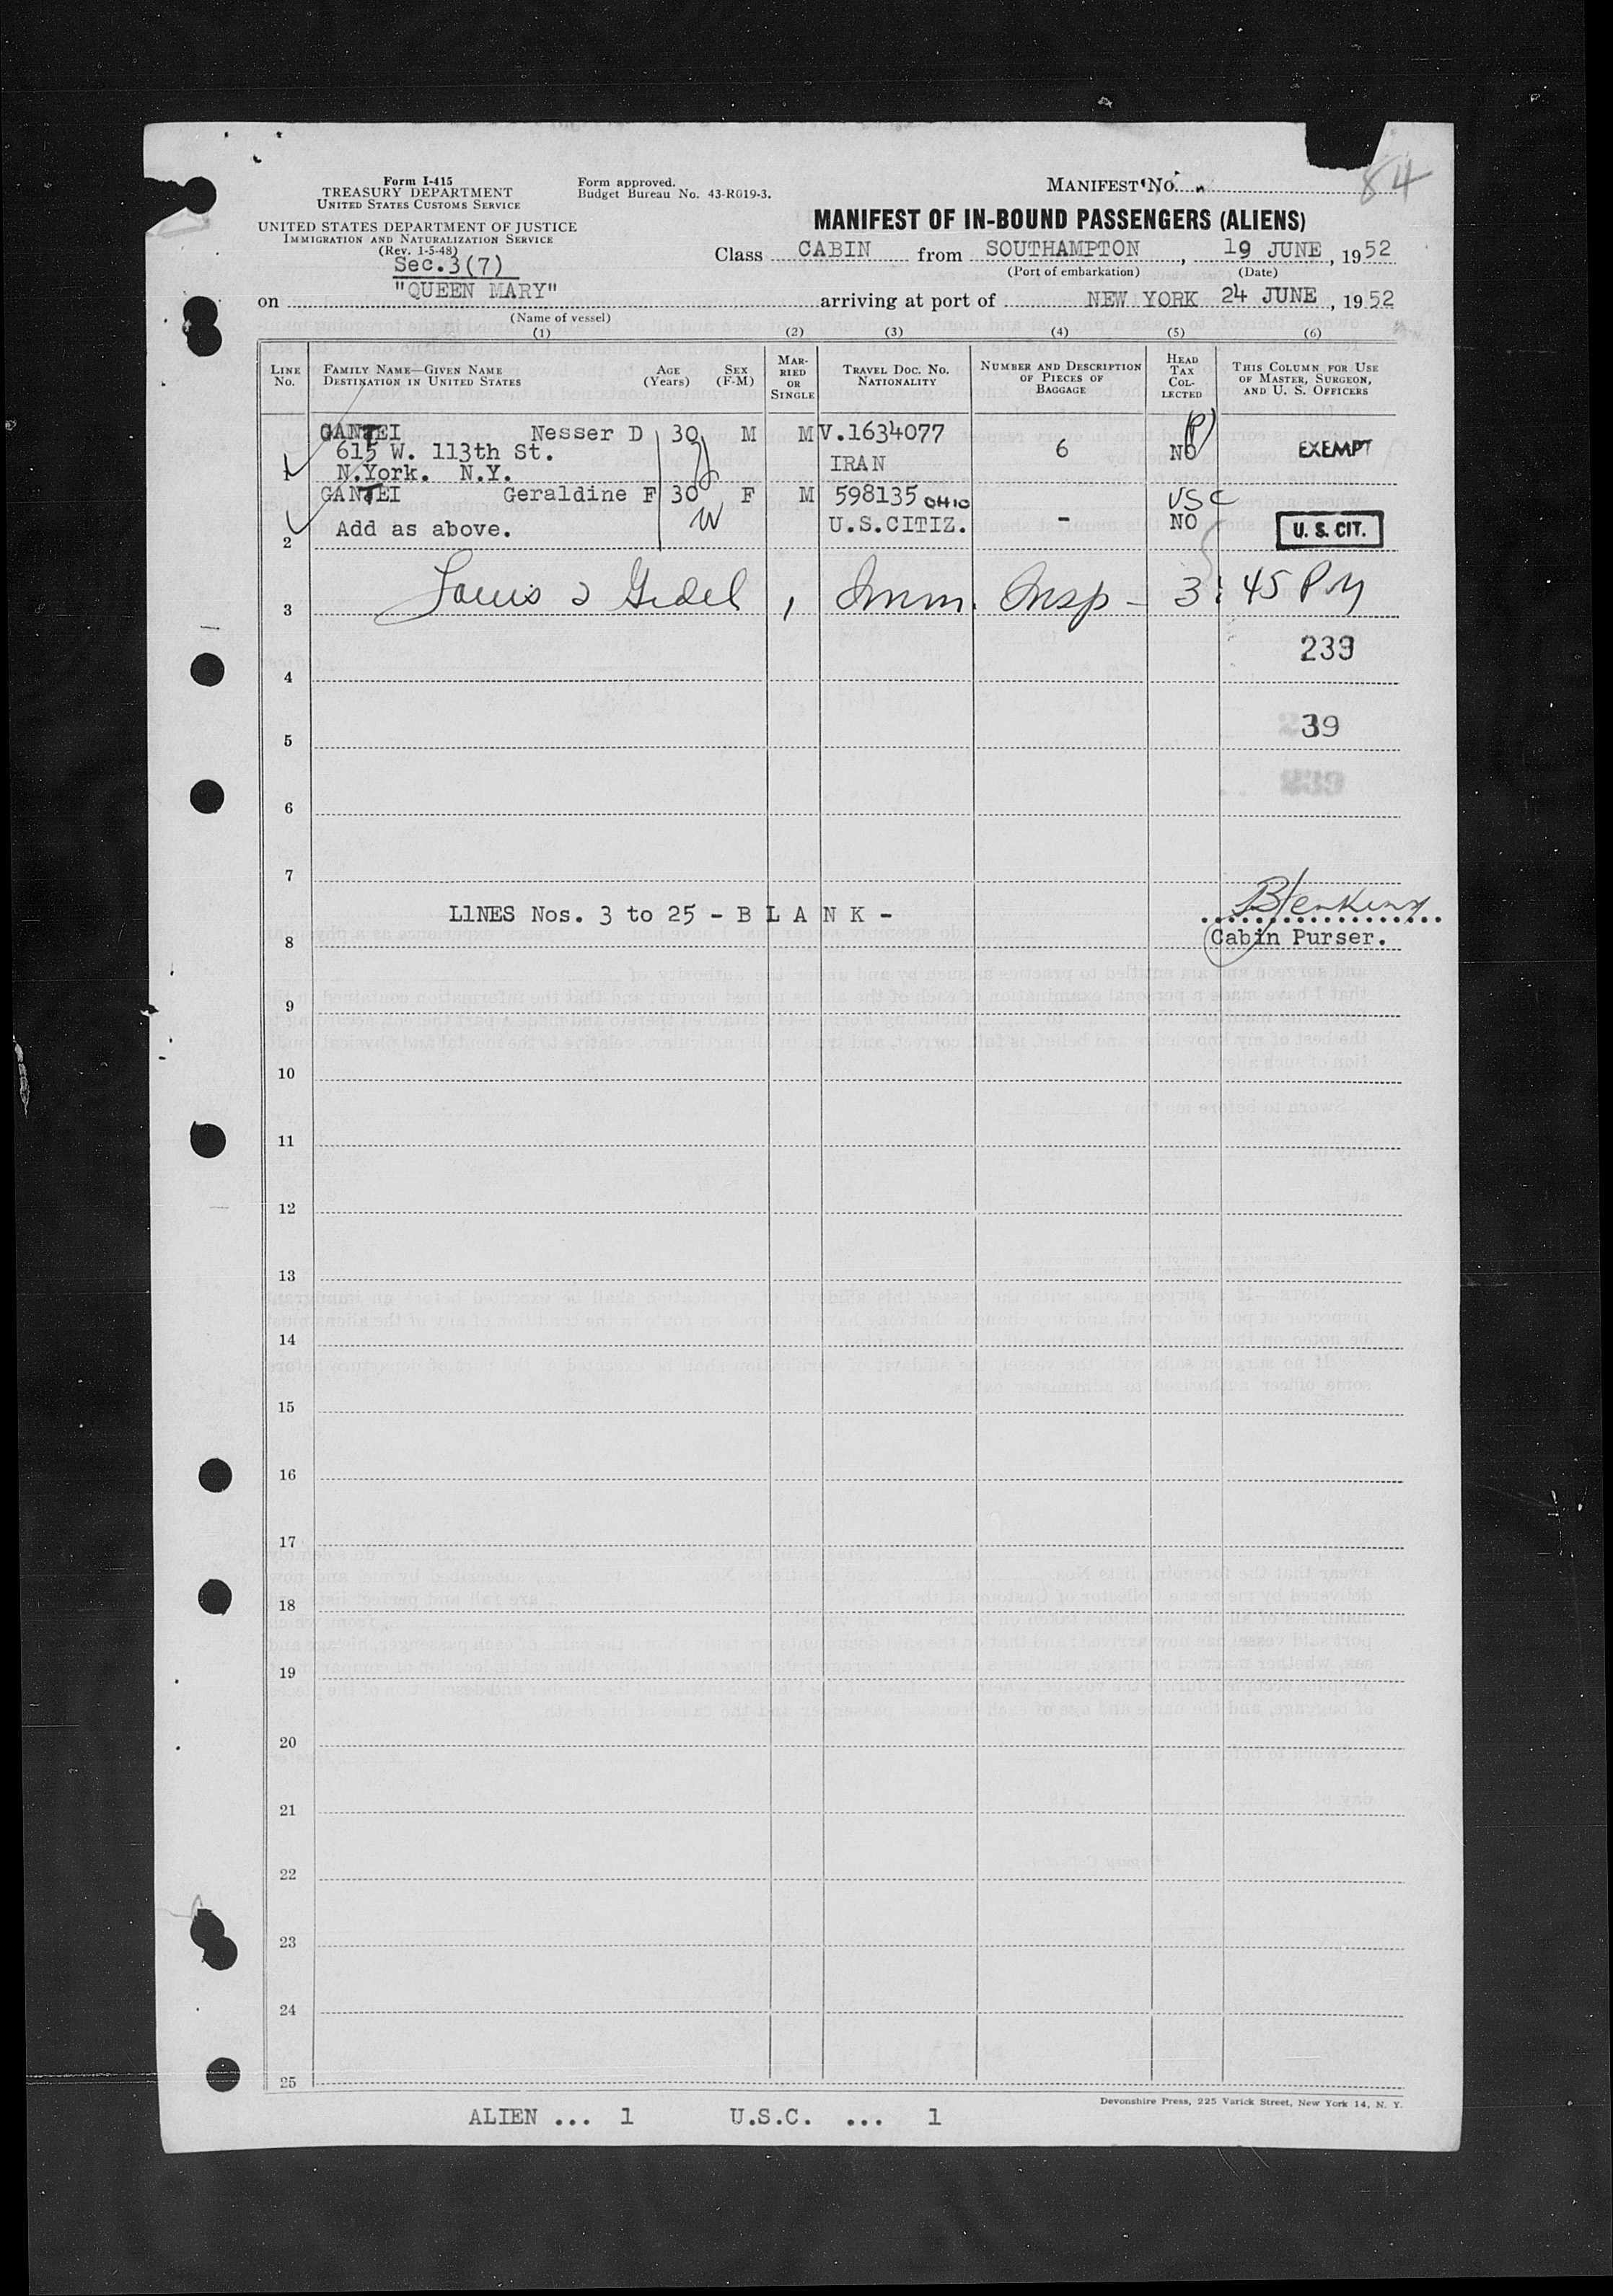 Form I-415
TREASURY DEPARTMENT
UNITED STATES CUSTOMS SERVICE
UNITED STATES DEPARTMENT OF JUSTICE
IMMIGRATION AND NATURALIZATION SERVICE
(Rev. 1-5-48)
Sec.3(7)
Form approved.
Budget Bureau No. 43-R019-3.
MANIFEST No.
84
MANIFEST OF IN-BOUND PASSENGERS (ALIENS)
Class CABIN from SOUTHAMPTON, 19 JUNE, 1952
(Port of embarkation) (Date)
on "QUEEN MARY" arriving at port of NEW YORK 24 JUNE, 1952
(Name of vessel)
(1) (2) (3) (4) (5) (6)
LINE No.
FAMILY NAME—GIVEN NAME
DESTINATION IN UNITED STATES
AGE (Years)
SEX (F-M)
MARRIED OR SINGLE
TRAVEL DOC. No.
NATIONALITY
NUMBER AND DESCRIPTION OF PIECES OF BAGGAGE
HEAD TAX COLLECTED
THIS COLUMN FOR USE OF MASTER, SURGEON, AND U. S. OFFICERS
GANTEI Nesser D 30 M M V.1634077
615 W. 113th St. 6 NO EXEMPT
1 N.York. N.Y. IRAN
GANTEI Geraldine F 30 F M 598135 OHIO USC
W
Add as above. U.S.CITIZ. - NO U. S. CIT.
2
3 Imm. Insp - 3:45 PM
239
4
39
5
239
6
7
LINES Nos. 3 to 25 - B L A N K -
Cabin Purser.
8
9
10
11
12
13
14
15
16
17
18
19
20
21
22
23
24
25
Devonshire Press, 225 Varick Street, New York 14, N. Y.
ALIEN ... 1 U.S.C. ... 1